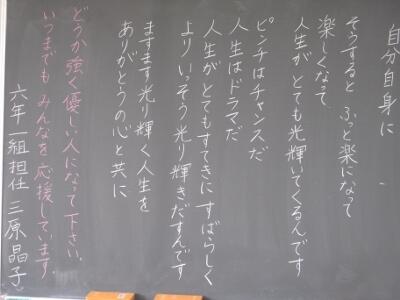 自分自身に
そうすると ふっと楽になって
楽しくなって
人生が とても光輝いてくるんです
ピンチはチャンスだ
人生はドラマだ
人生がとてもすてきにすばらしく
よりいっそう光り輝きだすんです
ますます光り輝く人生を
ありがとうの心と共に
どうか強く優しい人になって下さい。
いつまでも みんなを応援しています
六年一組担任 三原晶子